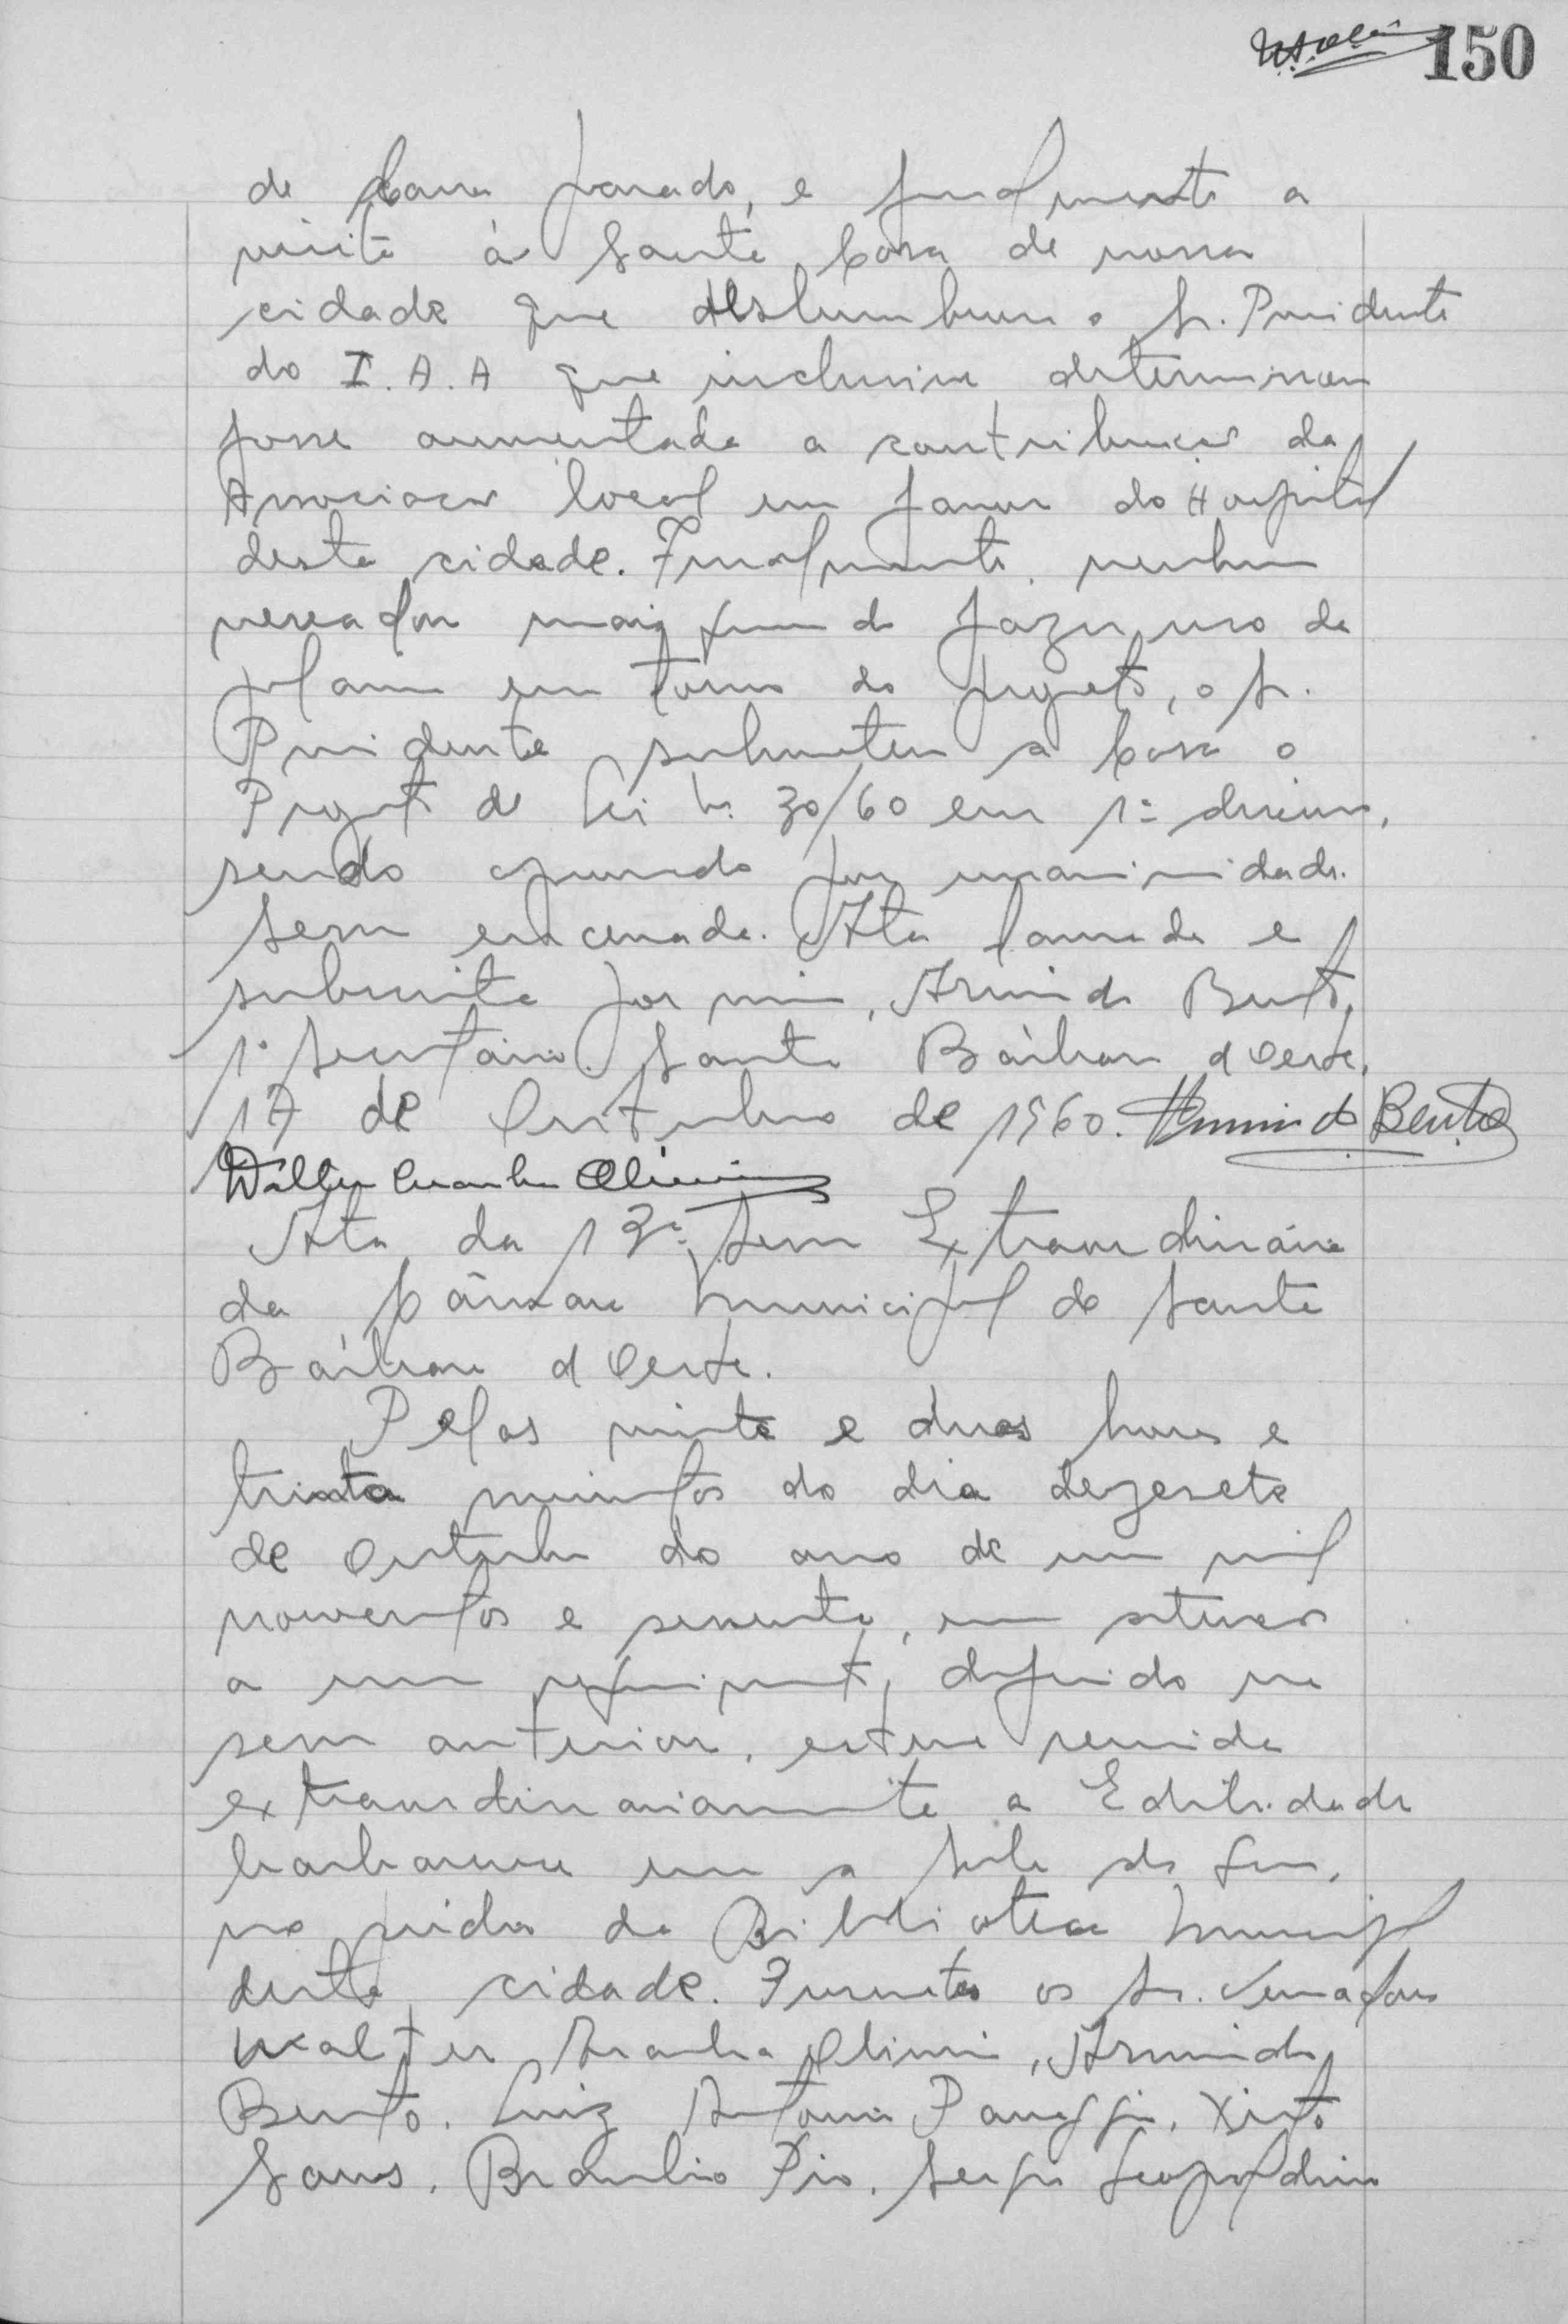 150
de Cana parado, e finalmente a
visita à Santa Casa de nossa
cidade que deslumbrou o Sr. Presidente
do I.A.A que inclusive determinou
fosse aumentada a contribuição da
Associação local em favor do Hospital
desta cidade. Finalmente, nenhum
vereador mais querendo fazer uso da
palavra em torno do projeto, o Sr.
Presidente submeteu a Casa o
Projeto de Lei nº 30/60 em 1ª discussão,
sendo aprovado por unanimidade.
Sessão encerrada. Ata lavrada e
subscrita por mim, Armindo Bento,
1º Secretário. Santa Bárbara d'Oeste,
17 de Outubro de 1960. Armindo Bento
Walter Aranha Oliveira
Ata da 13ª Sessão Extraordinária
da Câmara Municipal de Santa
Bárbara d'Oeste.
Pelas vinte e duas horas e
trinta minutos do dia dezesete
de Outubro do ano de um mil
novecentos e sessenta, em atenção
a um requerimento, deferido na
sessão anterior, esteve reunida
extraordinariamente a Edilidade
barbarense em a sala do Juri,
no prédio da Biblioteca Municipal
desta cidade. Presentes os Srs. Vereadores
Walter Aranha Oliveira, Armindo
Bento, Luiz Antonio Panaggio, Xisto
Sans, Braulio Pio, Sergio Leopoldino